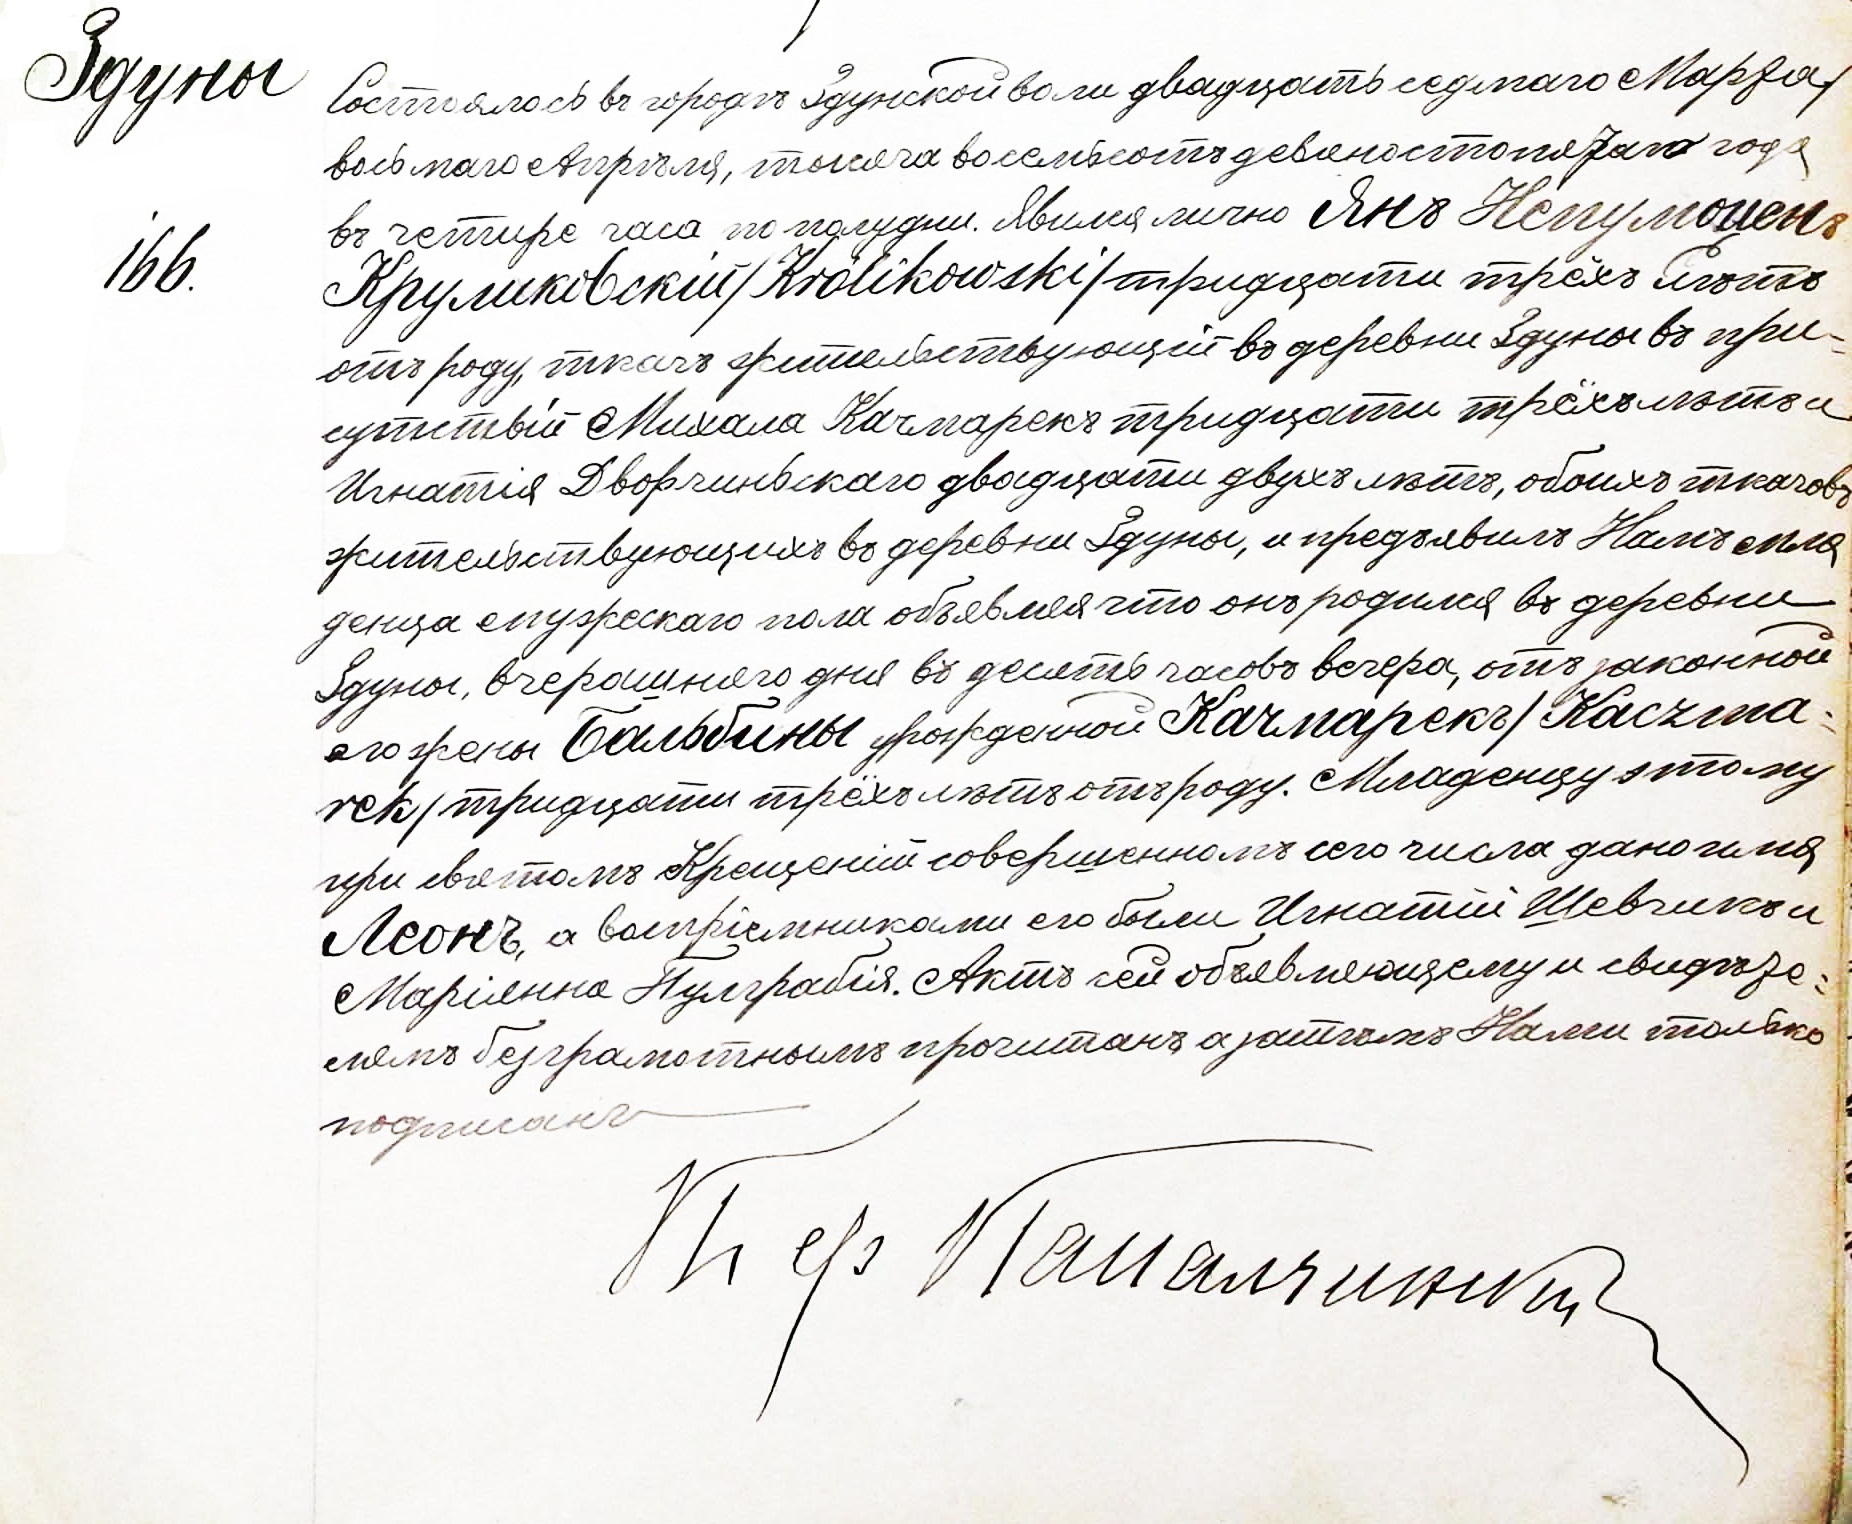 Здуны
166.
Состоялось въ городѣ Здунской воли двадцать седмаго Марта/
восьмаго Апрѣля, тысяча восемьсотъ девяностопятаго года
въ четире часа по полудни. Явился лично Янъ Непумоценъ
Круликовскій/Królikowski/тридцати трёхъ лѣтъ
отъ роду, ткачъ жительствующій въ деревни Здуны въ при-
сутствій Михала Качмарекъ тридцати трёхъ лѣтъ и
Игнатія Дворчиньскаго двадцати двухъ лѣтъ, обоихъ ткачовъ
жительствующихъ въ деревни Здуны, и предъявилъ Намъ мла
денца мужескаго пола объявляя что онъ родился въ деревни
Здуны, вчерашняго дня въ десять часовъ вечера, отъ законной
его жены Бальбины урожденной Качмарекъ/Kaczma-
rek/тридцати трёхъ лѣтъ отъ роду. Младенцу этому
при святомъ Крещеніи совершенномъ сего числа дано имя
Леонъ, а воспріемниками его были Игнатій Шевчикъ и
Маріянна Пулграбія. Актъ сей объявляющему и свидѣте-
лямъ безграмотнымъ прочитанъ а затѣмъ Нами только
подписанъ